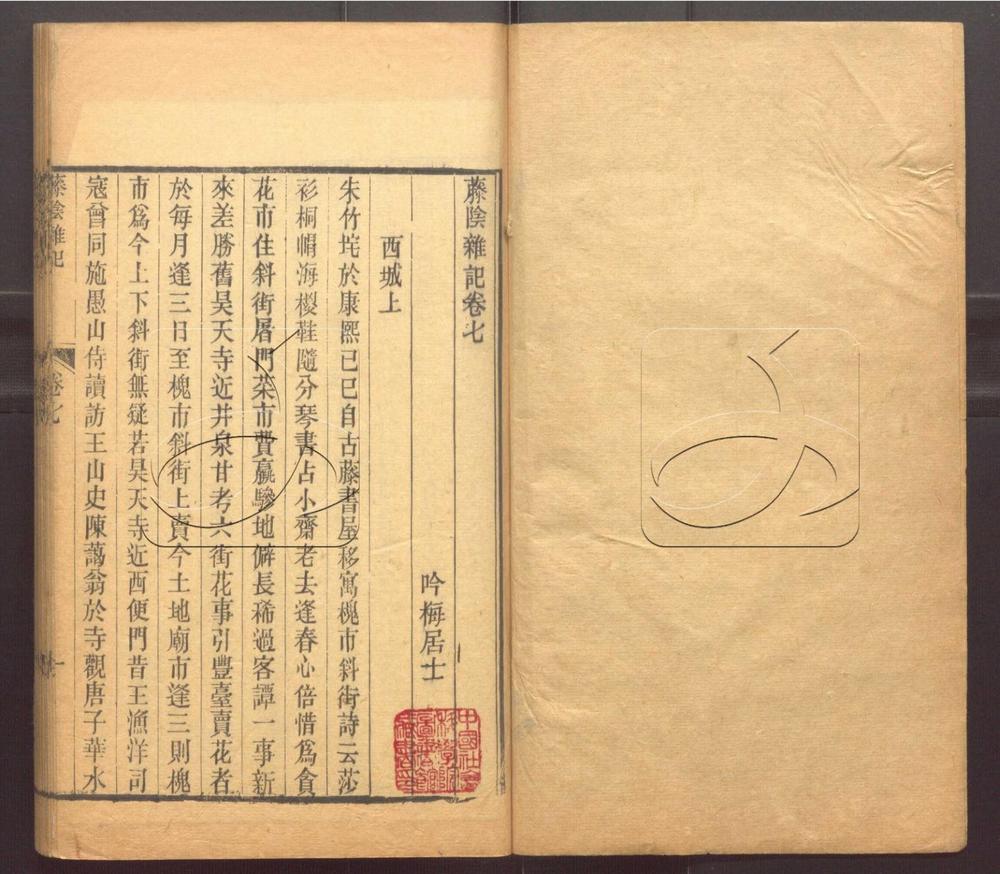 藤陰雜記卷七
吟梅居士
西城上
朱竹垞於康熙己巳自古藤書屋移寓槐市斜街詩云莎
衫桐帽海椶鞋隨分琴書占小齋老去逢春心倍惜爲貪
花市住斜街屠門菜市費羸驂地僻長稀過客譚一事新
來差勝舊昊天寺近井泉甘考六街花事引豐臺賣花者
於每月逢三日至槐市斜街上賣今土地廟市逢三則槐
市爲今上下斜街無疑若昊天寺近西便門昔王漁洋司
寇曾同施愚山侍讀訪王山史陳藹翁於寺觀唐子華水
藤陰雜記
卷七